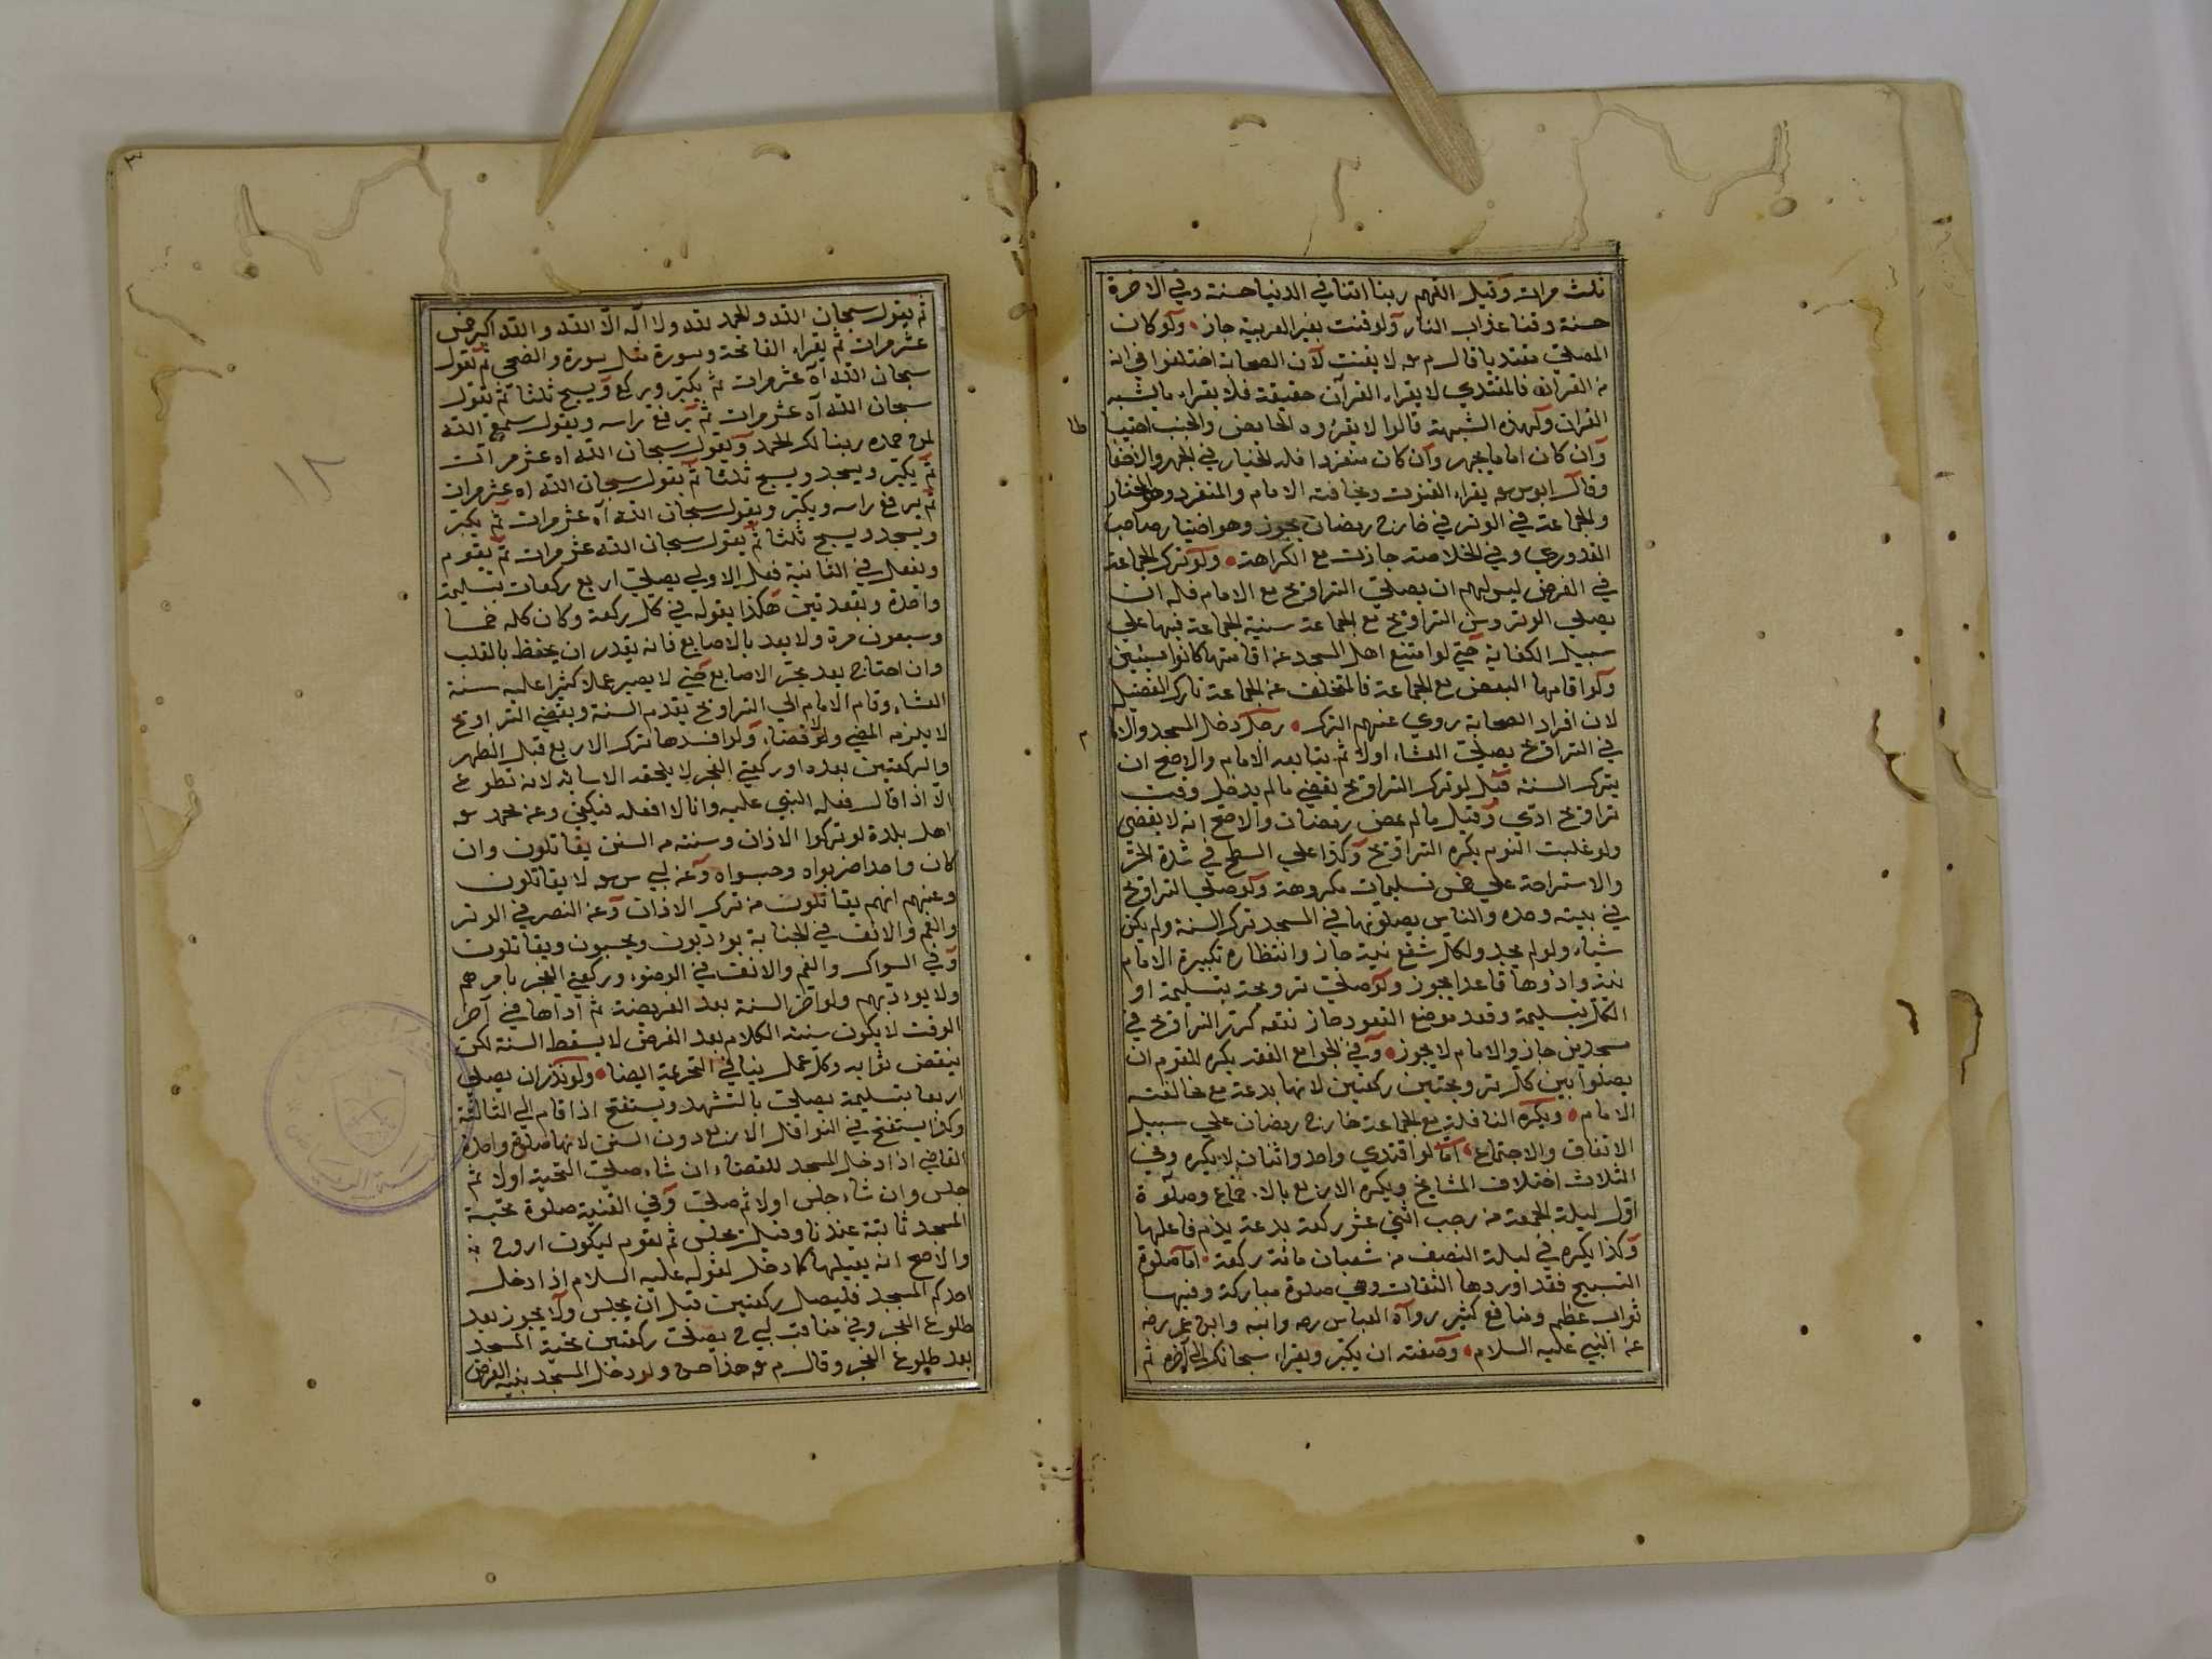 ثلث مرات وقيل اللهم ربنا اتنا في الدنيا حسنة وفي الاخرة
حسنة وقنا عذاب النار ولو قنت بغير العربية جاز ولو كان
المصلي مقتديا قال م لا يقنت لان الصحابة اختلفوا في انه
من القرآن فالمقتدي لا يقراء القرآن حقيقة فلا يقراء ما يشبه
القرآن ولهذه الشبهة قالوا لا يقرؤه الحايض والجنب احتيا
طا
وان كان اماما يجهر وان كان منفردا فله الخيار في الجهر والاخفا
وقال ابو س يقراء القنوت ومخافتة الامام والمنفرد وهو المختار
والجماعة في الوتر في خارج رمضان يجوز وهو اختيار صاحب
القدوري وفي الخلاصة جازت مع الكراهة ولو ترك الجماعة
في الفرض ليس لهم ان يصلي التراويح مع الامام فله ان
يصلي الوتر وسن التراويح مع الجماعة سنية الجماعة فيها علي
سبيل الكفاية حتي لو امتنع اهل المسجد عن اقامتها كانوا مسيئين
ولو اقامها البعض مع الجماعة فالمتخلف عن الجماعة تارك الفضيل
لان افراد الصحابة روي عنهم الترك رجل دخل المسجد والاما
م
في التراويح يصلي العشاء اولا ثم يتابعه الامام والاصح ان
يترك السنة قيل لو ترك التراويح يقضي ما لم يدخل وقت
تراويح اخري وقيل ما لم يمض رمضان والاصح انه لا يقضي
ولو غلبت النوم يكره التراويح وكذا علي السطح في شدة الحر
والاستراحة علي خمس تسليمات مكروهة ولو صلي التراويح
في بيته وحده والناس يصلونها في المسجد ترك السنة ولم يكن
شياء ولو لم يجد ولكل شفع نية جاز وانتظاره تكبيرة الامام
نية واذوها قاعدا يجوز ولو صلي ترويحة بتسليمة او
الكل بتسليمة وقعد موضع القعود جاز نتفه كرر التراويح في
مسجدين جاز والامام لا يجوز وفي الجوامع الفقه يكره للقوم ان
يصلوا بين كل ترويحتين ركعتين لانها بدعة مع مخالفته
الامام ويكره النافلة مع الجماعة خارج رمضان علي سبيل
الاتفاق والاجتماع اما لو اقتدي واحد واثنان لا يكره وفي
الثلاث اختلاف المشايخ ويكره الاربع بالاجماع وصلوة
اول ليلة الجمعة من رجب اثني عشر ركعة بدعة يذم فاعلها
وكذا يكره في ليلة النصف من شعبان مائة ركعة اما صلوة
التسبيح فقد اوردها الثقات وهي صلوة مباركة وفيها
ثواب عظيم ومنافع كثير رواه العباس رضه وابنه وابن عمر رضه
عن النبي عليه السلام وصفته ان يكبر ويقراء سبحانك الي آخره ثم
١٨
ثم يقول سبحان الله والحمد لله ولا اله الا الله والله اكبر خمس
عشر مرات ثم يقراء الفاتحة وسورة مثل سورة والضحي ثم يقول
سبحان الله اه عشر مرات ثم يكبر ويركع ويسبح ثلثا ثم يقول
سبحان الله اه عشر مرات ثم يرفع راسه ويقول سمع الله
لمن حمده ربنا لك الحمد ويقول سبحان الله اه عشر مرات
ثم يكبر ويسجد ويسبح ثلثا ثم يقول سبحان الله اه عشر مرات
ثم يرفع راسه ويكبر ويقول سبحان الله اه عشر مرات ثم يكبر
ويسجد ويسبح ثلثا ثم يقول سبحان الله عشر مرات ثم يقوم
ويفعل في الثانية فعل الاولي يصلي اربع ركعات بتسليمة
واحدة وبقعدتين هكذا يقوله في كل ركعة وكان كله خمسا
وسبعون مرة ولا يعد بالاصابع فانه يقدر ان يحفظ بالقلب
وان احتاج يعد بجر الاصابع حتي لا يصير عملا كثيرا عليه سنة
العشاء وقام الامام الي التراويح يقدم السنة ويقضي التراويح
لا يلزمه المضي ولا قضاء ولو افسدها ترك الاربع قبل الظهر
والركعتين بعده او ركعتي الفجر لا يلحقه الاساءة لانه تطوع
الا اذا قال فعله النبي عليه وانا لا افعله فيكفي وعن محمد
اهل بلدة لو تركوا الاذان وسنته من السنن يقاتلون وان
كان واحدا ضربواه وحبسواه وعن ابي س لا يقاتلون
وعنهم انهم يقاتلون من ترك الاذان وعن النصر في الوتر
والفم والانف في الجنابة يؤدبون ويحبسون ويقاتلون
وفي السواك والفم والانف في الوضوء وركعتي الفجر يامرهم
ولا يؤدبهم ولو اخر السنة بعد الفريضة ثم اداها في آخر
الوقت لا يكون سنته الكلام بعد الفرض لا يسقط السنة لكن
ينقص ثوابه وكل عمل ينافي التحريمة ايضا ولو نذر ان يصلي
اربعا بتسليمة يصلي بالتشهد ويستفتح اذا قام الي الثالثة
وكذا يستفتح في النوافل الاربع دون السنن لانها صلوة واحدة
القاضي اذا دخل المسجد للقضاء ان شاء صلي التحية اولا ثم
جلس وان شاء جلس اولا ثم صلي وفي القنية صلوة تحية
المسجد ثابتة عندنا وقيل يجلس ثم يقوم ليكون اروح
والاصح انه يصليها كما دخل لقوله عليه السلام اذا دخل
احدكم المسجد فليصل ركعتين قبل ان يجلس ولا يجوز بعد
طلوع الفجر وفي مناقب ابي ح يصلي ركعتين تحية المسجد
بعد طلوع الفجر وقال م هذا حسن ولو دخل المسجد بنية الفرض